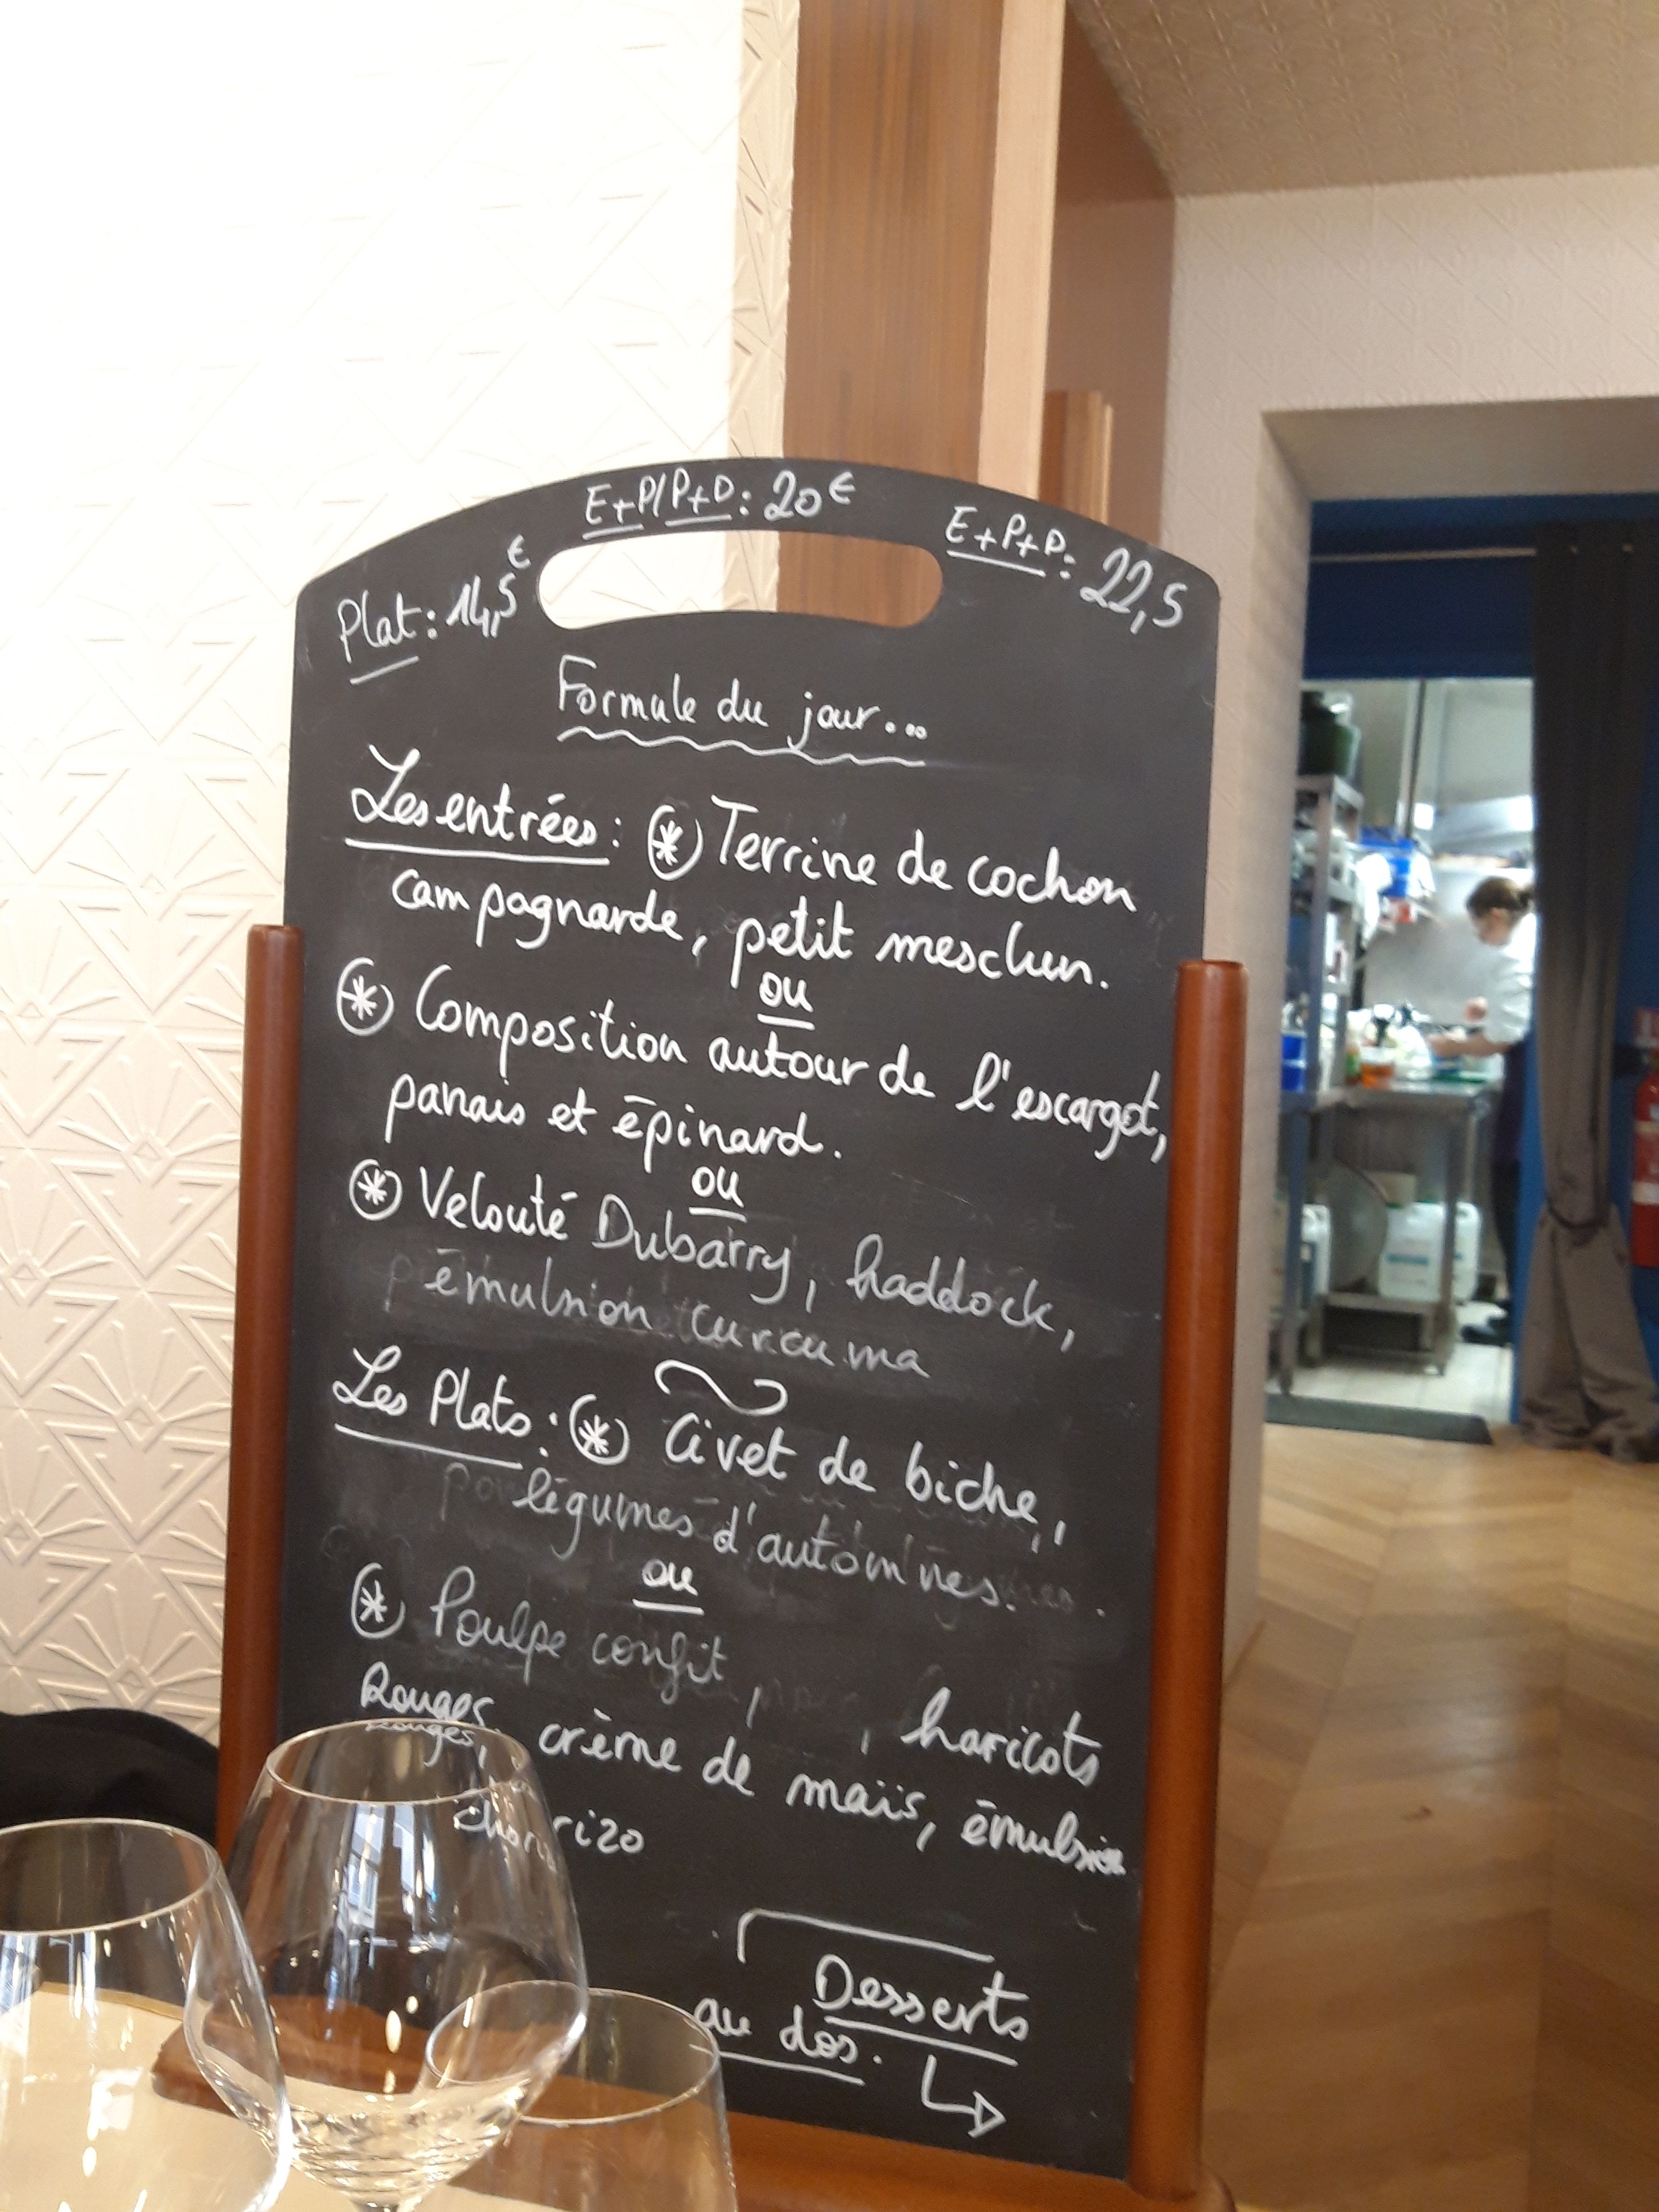 Plat: 14,5€
E+P/P+D: 20€
E+P+D: 22,5
Formule du jour...
Les entrées: Terrine de cochon
campagnarde, petit mesclun.
ou
Composition autour de l'escargot,
panais et épinard.
ou
Velouté Dubarry, haddock,
émulsion curcuma
Les Plats: Civet de biche,
légumes d'automnes.
ou
Poulpe confit, , haricots
Rouges, crème de maïs, émulsion
chorizo
Desserts
au dos.